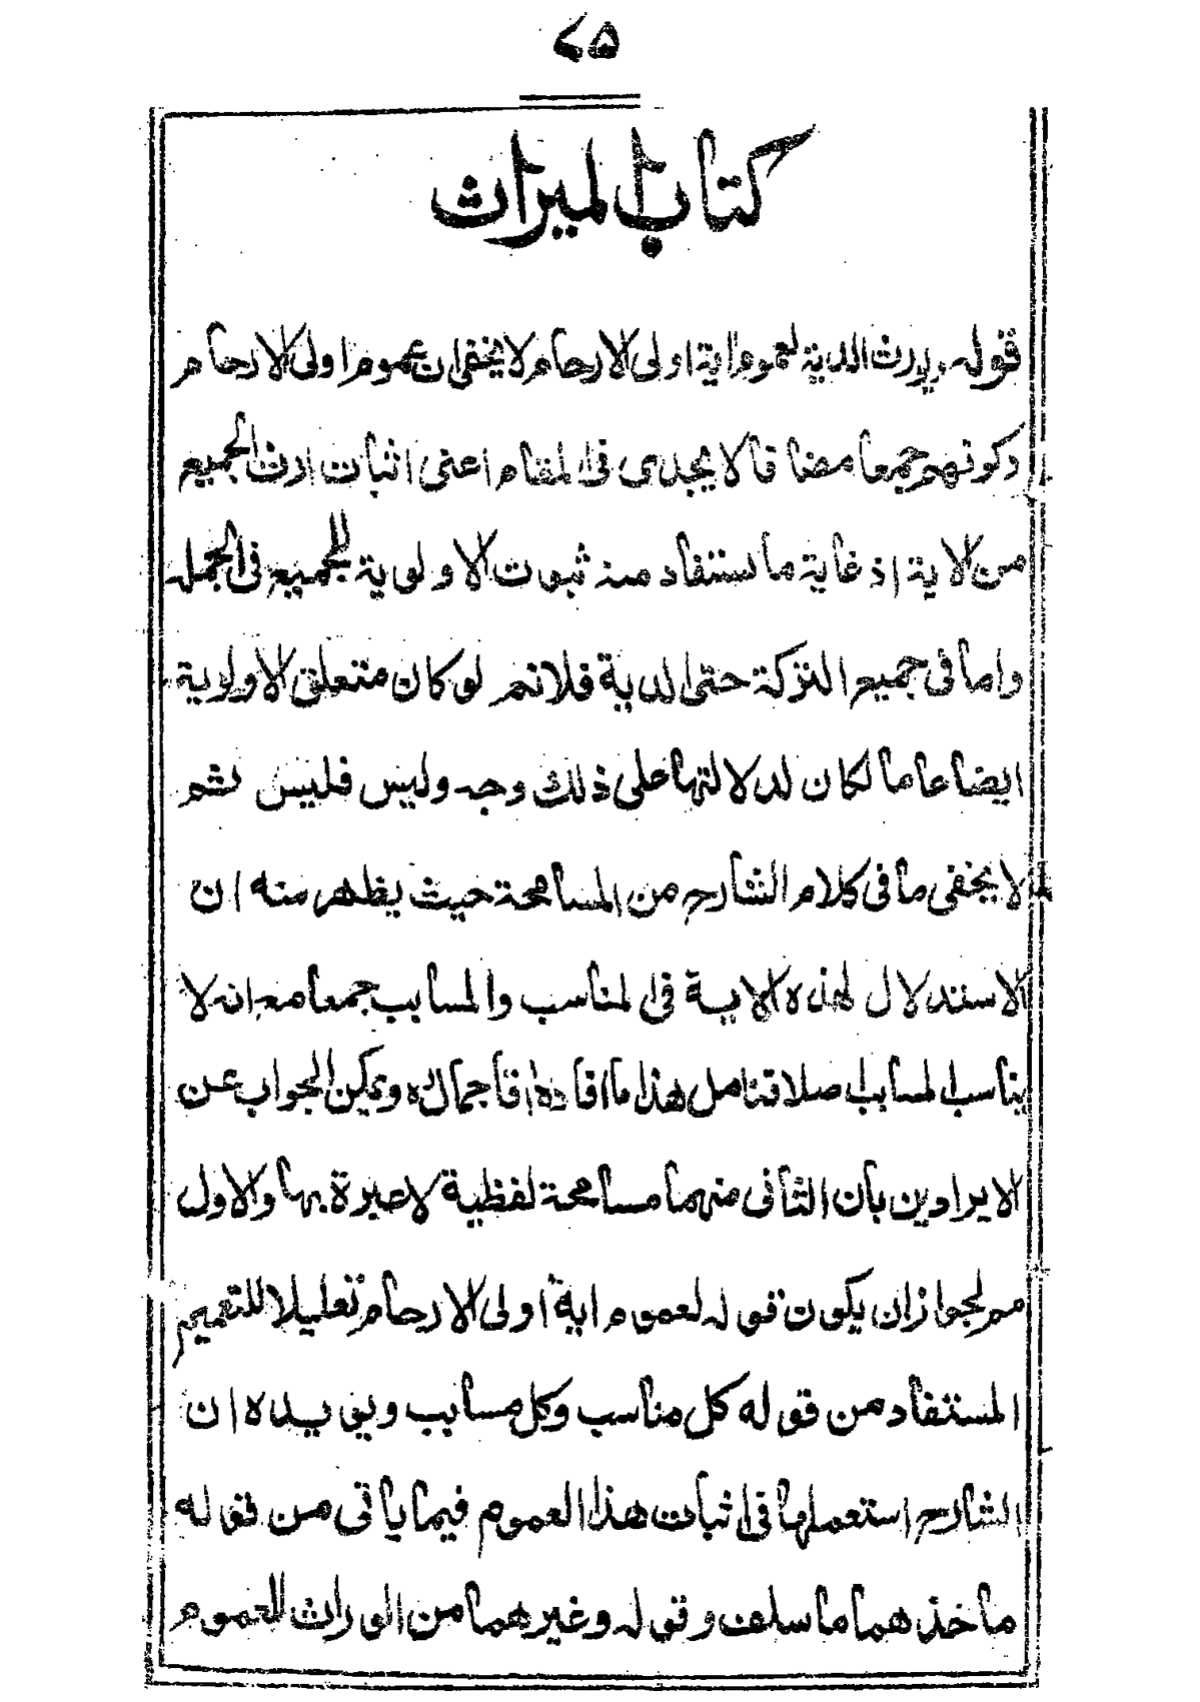 ٧٥
كتاب الميراث
قوله ويرث الدية لعموم اية اولى الارحام لا يخفى ان عموم اولى الارحام
وكونهم جمعا مضافا لا يجدى فى المقام اعنى اثبات ارث الجميع
من الاية اذ غاية ما يستفاد منه ثبوت الاولوية للجميع فى الجمله
واما فى جميع التركة حتى الدية فلا نعم لو كان متعلق الاولوية
ايضا عاما لكان لدلالتها على ذلك وجه وليس فليس ثم
لا يخفى ما فى كلام الشارح من المسامحة حيث يظهر منه ان
الاستدلال لهذه الاية فى المناسب والمسابب جمعا مع انه لا
يناسب المسابب اصلا فتامل هذا ما افاده اقا جمال ره ويمكن الجواب عن
الايرادين بان الثانى منهما مسامحة لفظية لا عبرة بها والاول
مع لجواز ان يكون قوله لعموم اية اولى الارحام تعليلا للتعميم
المستفاد من قوله كل مناسب وكل مسابب ويؤيده ان
الشارح استعملها فى اثبات هذا العموم فيما ياتى من قوله
ماخذهما ما سلف وقوله وغيرهما من الوراث للعموم